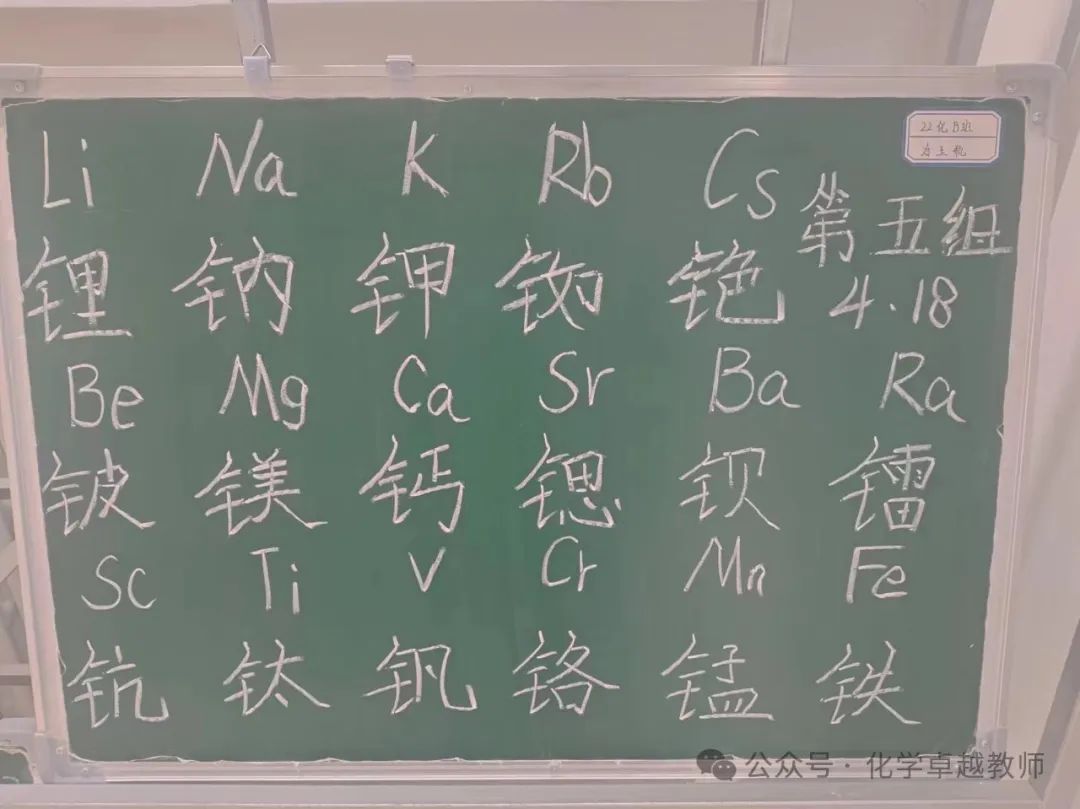 22化B班
Li Na K Rb Cs
第五组
锂 钠 钾 铷 铯
4·18
Be Mg Ca Sr Ba Ra
铍 镁 钙 锶 钡 镭
Sc Ti V Cr Mn Fe
钪 钛 钒 铬 锰 铁
公众号·化学卓越教师